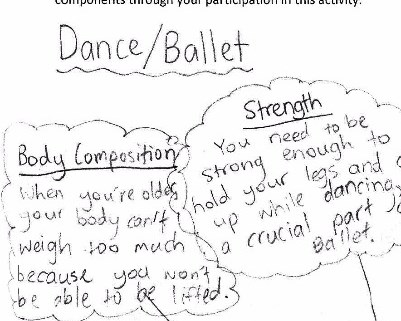 components through your participation in this activity.
Dance/Ballet
Body Composition
When you're older
your body can't
weigh too much
because you won't
be able to be lifted.
Strength
You need to be
strong enough to
hold your legs and
up while dancing,
a crucial part
Ballet.